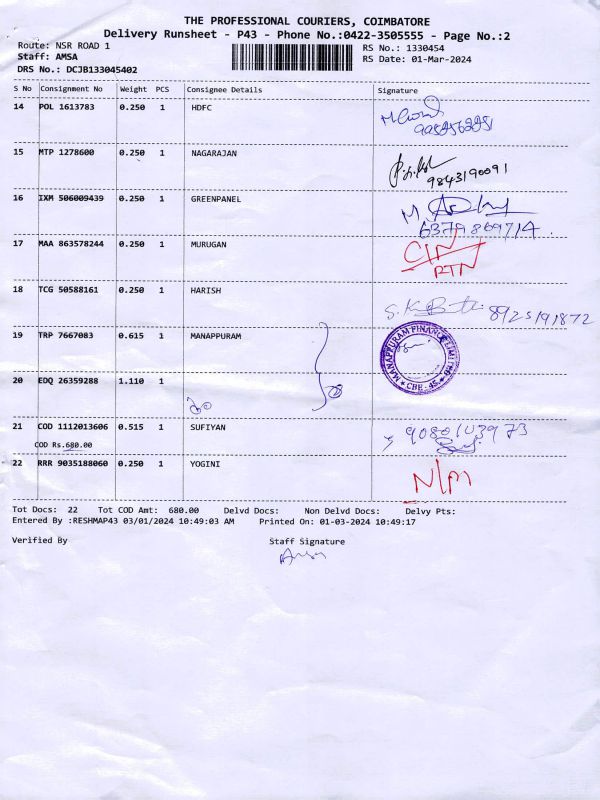 THE PROFESSIONAL COURIERS, COIMBATORE
Delivery Runsheet - P43 - Phone No.:0422-3505555 - Page No.:2
Route: NSR ROAD 1
RS No.: 1330454
Staff: AMSA
RS Date: 01-Mar-2024
DRS No.: DCJB133045402
S No Consignment No Weight PCS Consignee Details Signature
14 POL 1613783 0.250 1 HDFC
15 MTP 1278600 0.250 1 NAGARAJAN
9843190091
16 IXM 506009439 0.250 1 GREENPANEL
6379869714
17 MAA 863578244 0.250 1 MURUGAN
RTN
18 TCG 50588161 0.250 1 HARISH
8925191872
19 TRP 7667083 0.615 1 MANAPPURAM
MANAPPURAM FINANCE LIMITED
20 EDQ 26359288 1.110 1
21 COD 1112013606 0.515 1 SUFIYAN
COD Rs.680.00
22 RRR 9035188060 0.250 1 YOGINI
Tot Docs: 22 Tot COD Amt: 680.00 Delvd Docs: Non Delvd Docs: Delvy Pts:
Entered By :RESHMAP43 03/01/2024 10:49:03 AM Printed On: 01-03-2024 10:49:17
Verified By Staff Signature